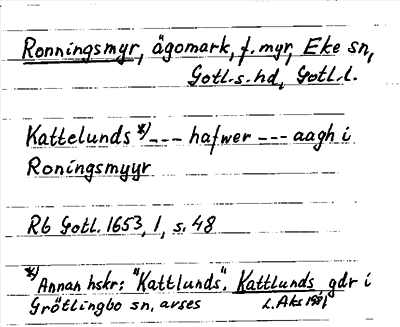 Ronningsmyr, ägomark, f. myr, Eke sn,
Gotl. s. hd, Gotl. l.
Kattelunds *) --- hafwer --- aagh i
Roningsmyyr
Rb Gotl. 1653, 1, s. 48
*) Annan hskr: "Kattlunds". Kattlunds, gdr i
Grötlingbo sn, avses
L. Aks 1981